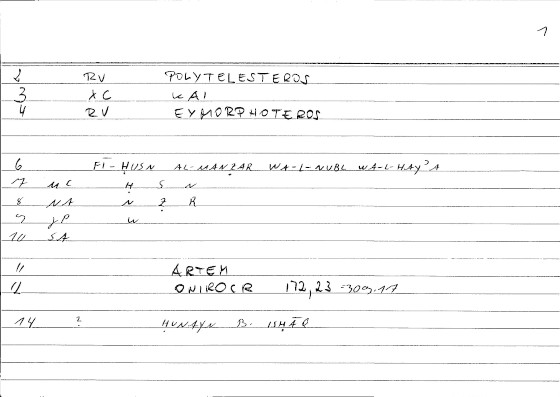 1
2 RV POLYTELESTEROS
3 XC KAI
4 RV EYMORPHOTEROS
6 FĪ-ḤUSN AL-MANẒAR WA-L-NUBL WA-L-HAYʾA
7 MC Ḥ S N
8 NA N Ẓ R
9 JP W
10 SA
11 ARTEM
12 ONIROCR 172,23 = 309.17
14 ? ḤUNAYN B. ISḤĀQ